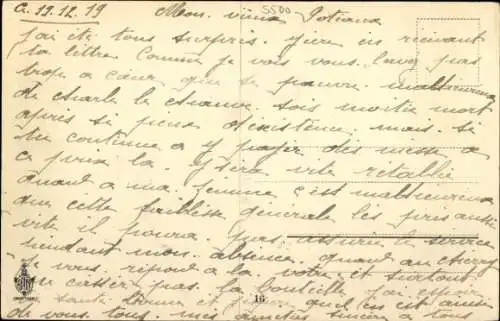 a. 19.12.19 Mon vieux 5500
j'ai été tous surpris hier en recevant
ta lettre. Comme je vois vous l'avez pas
trop a cœur que se pauvre malheureux
de charle le chauve soit moitié mort
après si peux d'existence mais si
tu continue a y payer des messe a
ce prix la y sera vite rétablie
quand a ma femme c'est malheureux
que cette faiblesse générale les pris aussi
vite il pourra pas assurer le service
pendant mon absence quand au cherry
je vous répond a la votre et surtout
ne casser pas la bouteille
santé bonne et qu'il en est ainsi
de vous tous. mes amitiés sincère a tous
16